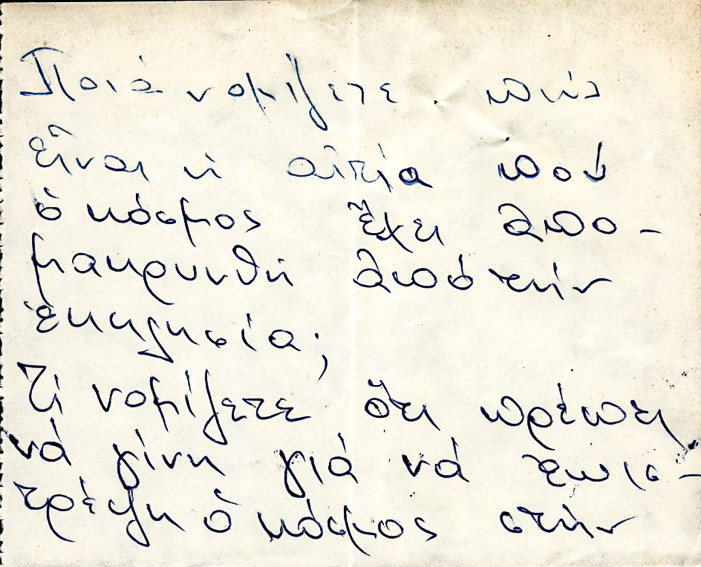 Ποιά νομίζετε πώς
εἶναι ἡ αἰτία πού
ὁ κόσμος ἔχει ἀπο-
μακρυνθῆ ἀπό τήν
ἐκκλησία;
Τί νομίζετε ὅτι πρέπει
νά γίνη γιά νά ἐπισ-
τρέψη ὁ κόσμος στήν